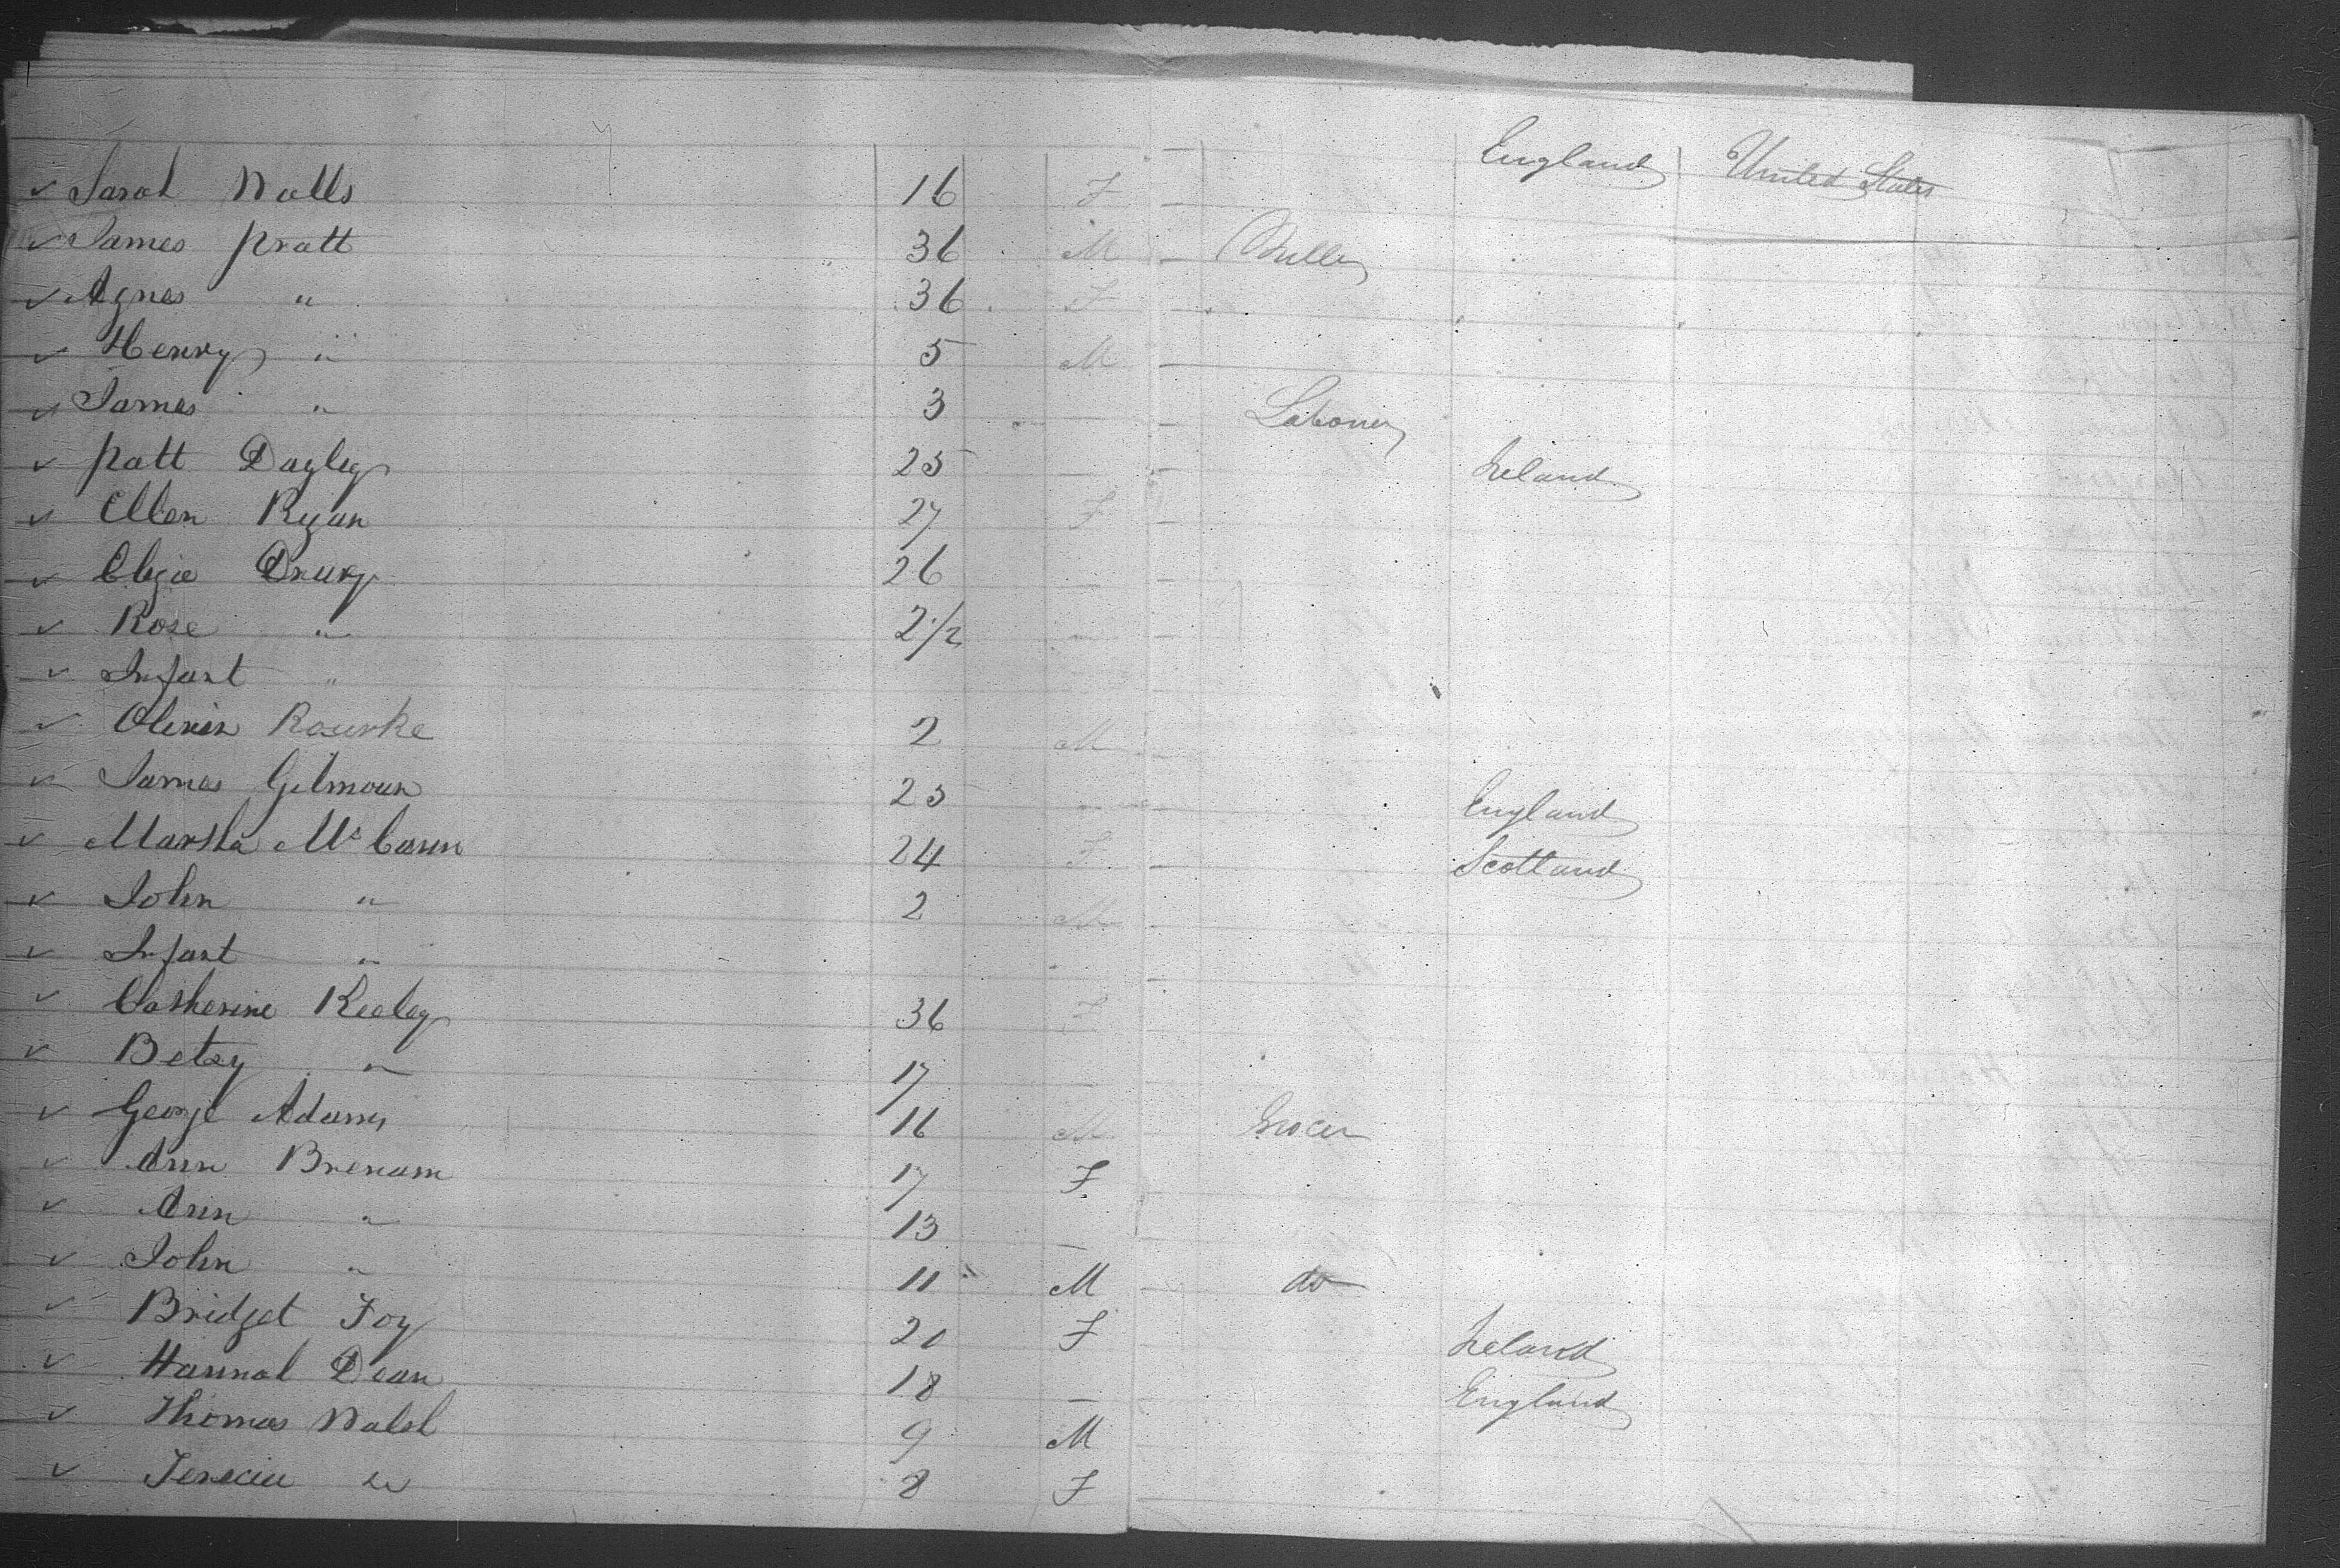 ✓ Sarah Walls 16 F England United States
✓ James Pratt 36 M Miller
✓ Agnes " 36 F
✓ Henry " 5 M
✓ James " 3 — Laborer
✓ Patt Dayley 25 — Ireland
✓ Ellen Ryan 27 F
✓ Eliza Drury 26 —
✓ Rose " 2 1/2 —
✓ Infant "
✓ Rourke 2 M
✓ James Gilmour 25 — England
✓ Martha McCann 24 F Scotland
✓ John " 2 M
✓ Infant "
✓ Catherine Keeley 36 F
✓ Betsy " 17 —
✓ George Adams 16 M Grocer
✓ Ann Brenam 17 F
✓ Ann " 13 —
✓ John " 11 M do
✓ Bridget Foy 20 F Ireland
✓ Hannah Dean 18 — England
✓ Thomas Walsh 9 M
✓ " 8 F